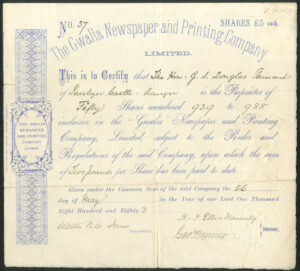 No. 37 SHARES £5 each.
The Gwalia Newspaper and Printing Company
LIMITED.
This is to Certify that The Hon. G. S. Douglas Pennant
of Penrhyn Castle Bangor is the Proprietor of
Fifty Shares numbered 939 to 988
inclusive in the "Gwalia" Newspaper and Printing
Company, Limited, subject to the Rules and
Regulations of the said Company, upon which the sum
of Two pounds per Share has been paid to date
Given under the Common Seal of the said Company the 26
day of May in the Year of our Lord One Thousand
Eight Hundred and Eighty 3
Directors.
Secretary.
THE GWALIA
NEWSPAPER
AND PRINTING
COMPANY
LIMITED